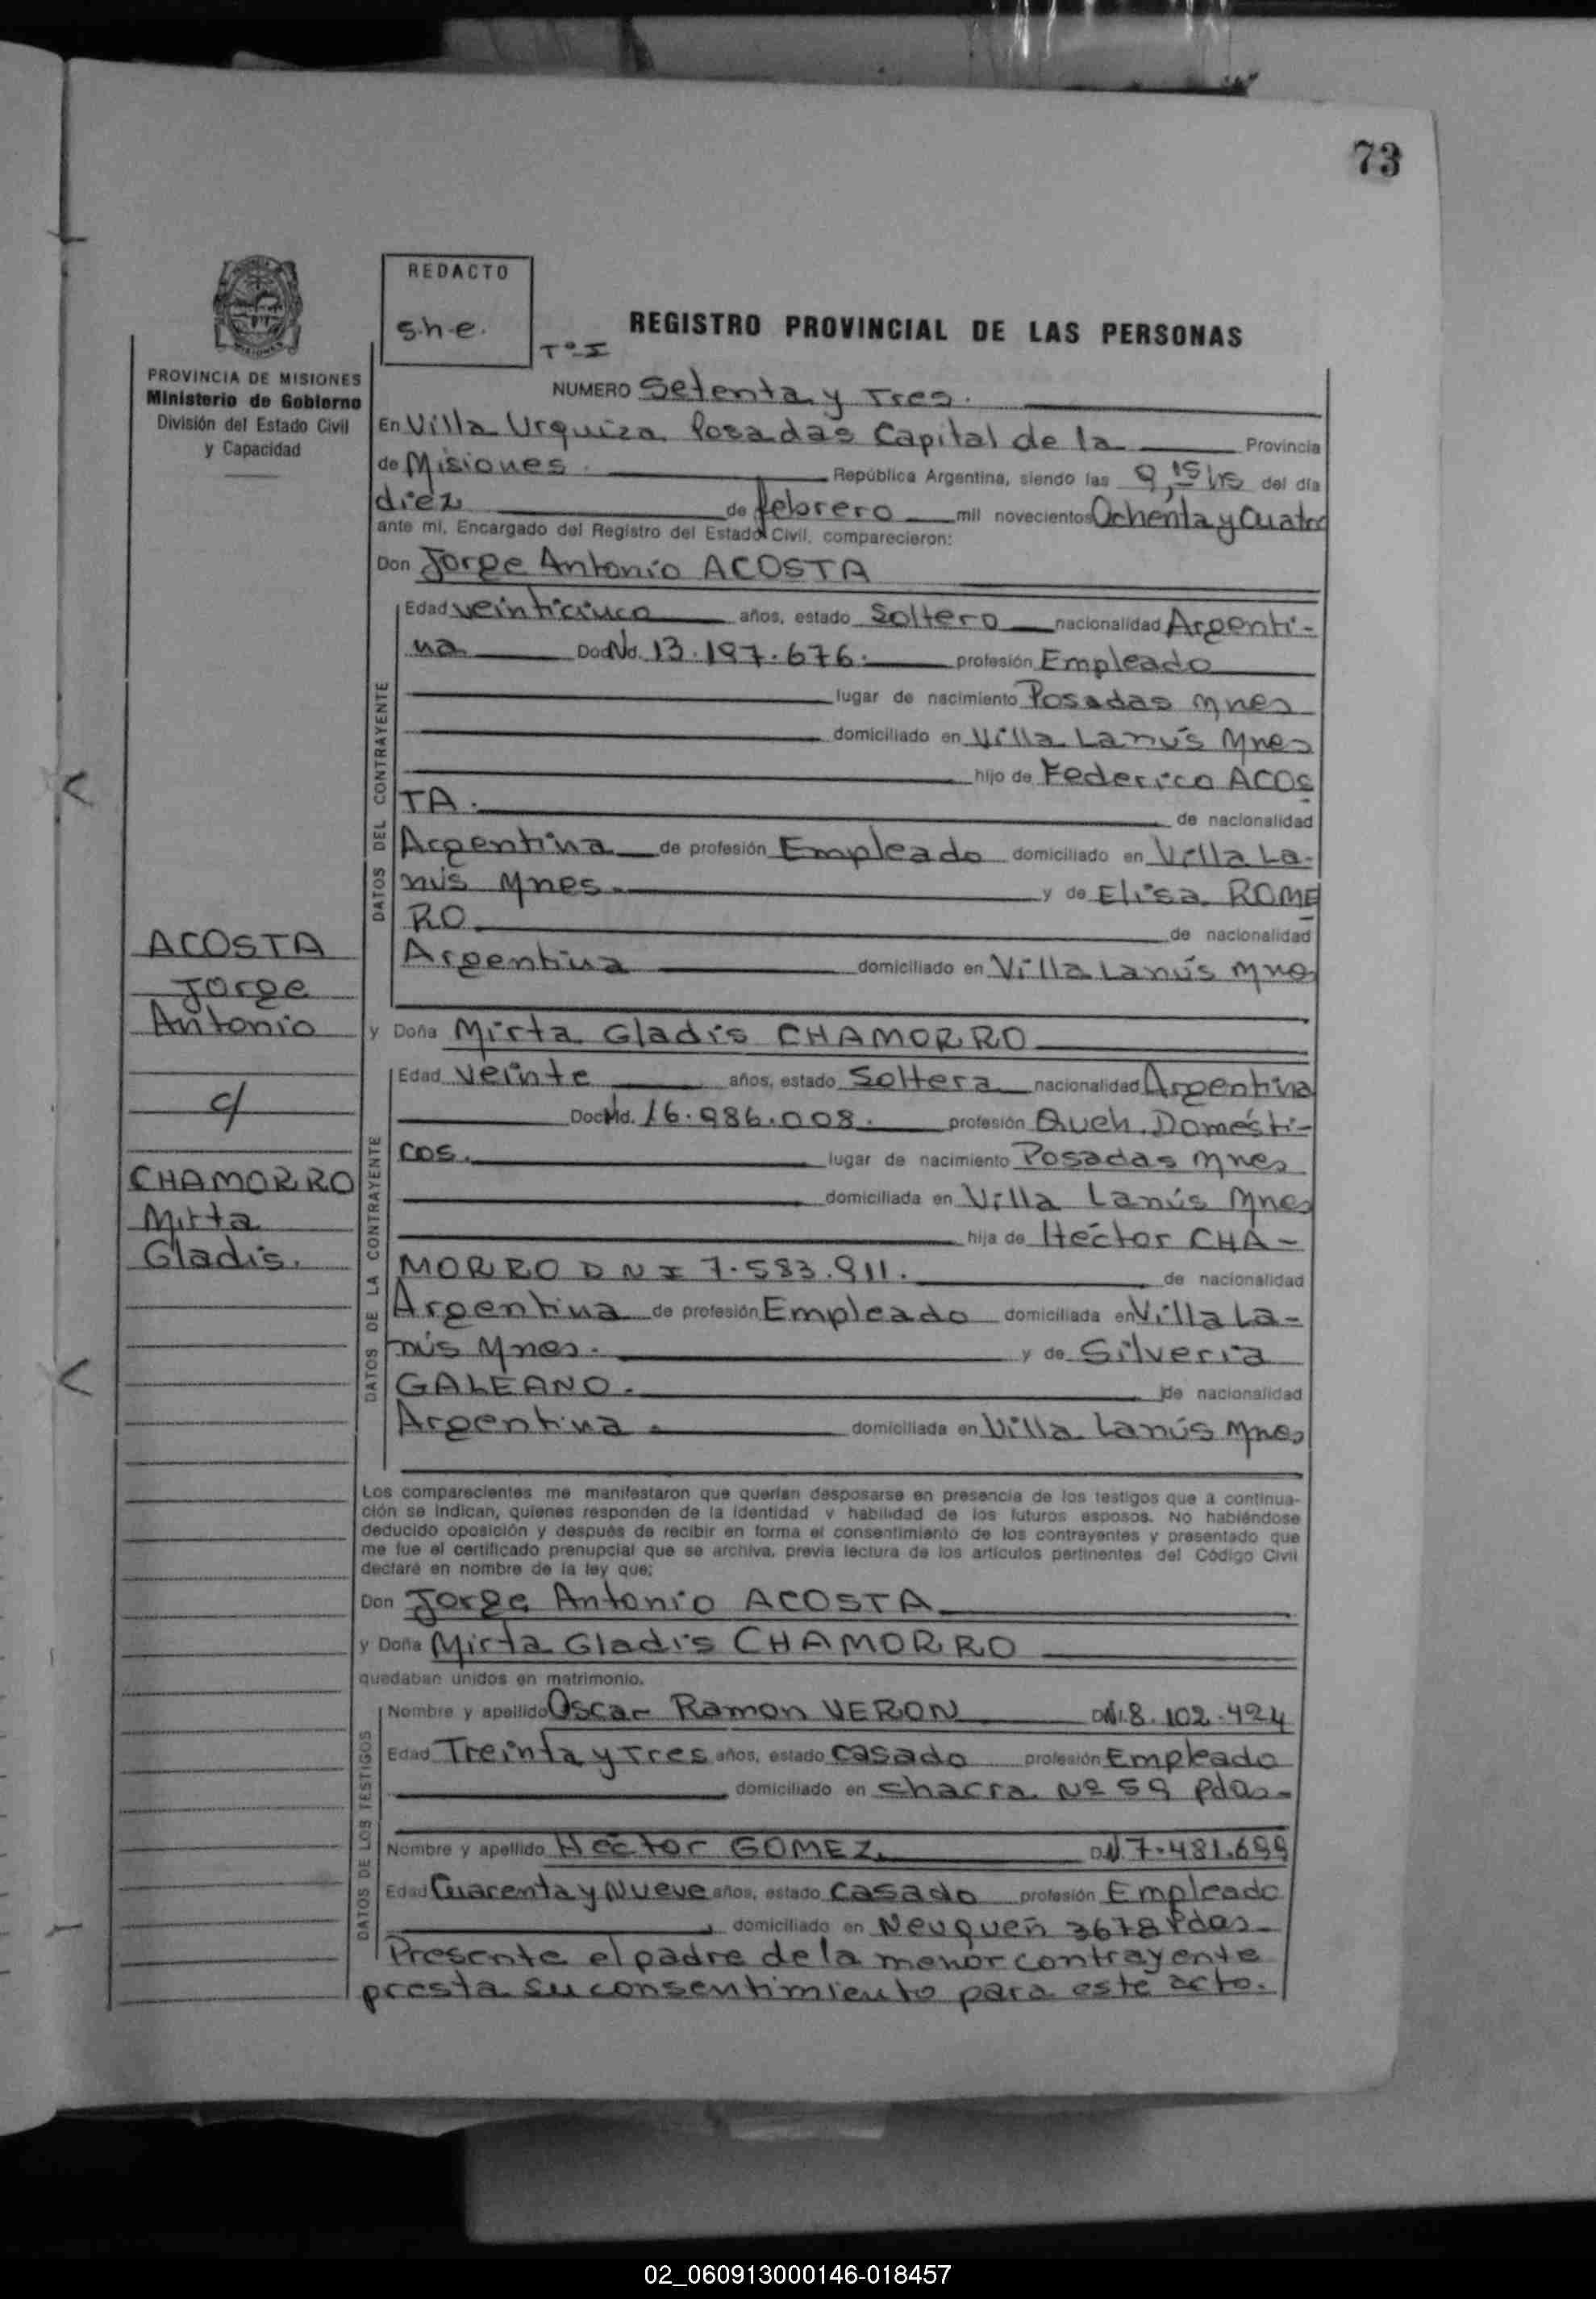 73
REDACTO
s.h.e.
Tº-I
REGISTRO PROVINCIAL DE LAS PERSONAS
PROVINCIA DE MISIONES
Ministerio de Gobierno
División del Estado Civil
y Capacidad
NUMERO Setenta y Tres.
En Villa Urquiza Posadas Capital de la Provincia
de Misiones. República Argentina, siendo las 9,15 hs del día
diez de febrero mil novecientos Ochenta y Cuatro
ante mí, Encargado del Registro del Estado Civil, comparecieron:
Don Jorge Antonio ACOSTA
DATOS DEL CONTRAYENTE
Edad veinticinco años, estado Soltero nacionalidad Argenti-
na Doc. Nd. 13.197.676. profesión Empleado
lugar de nacimiento Posadas Mnes
domiciliado en Villa Lanús Mnes
hijo de Federico ACOS
TA. de nacionalidad
Argentina de profesión Empleado domiciliado en Villa La-
nús Mnes. y de Elisa ROME
RO de nacionalidad
Argentina domiciliado en Villa Lanús Mnes
ACOSTA
Jorge
Antonio
c/
CHAMORRO
Mirta
Gladis.
y Doña Mirta Gladis CHAMORRO
DATOS DE LA CONTRAYENTE
Edad veinte años, estado Soltera nacionalidad Argentina
Doc. Nd. 16.986.008. profesión Queh. Domésti-
cos. lugar de nacimiento Posadas Mnes
domiciliada en Villa Lanús Mnes
hija de Héctor CHA-
MORRO D N I 7.583.911. de nacionalidad
Argentina de profesión Empleado domiciliada en Villa La-
nús Mnes. y de Silveria
GALEANO. de nacionalidad
Argentina. domiciliada en Villa Lanús Mnes
Los comparecientes me manifestaron que querían desposarse en presencia de los testigos que a continua-
ción se indican, quienes responden de la identidad y habilidad de los futuros esposos. No habiéndose
deducido oposición y después de recibir en forma el consentimiento de los contrayentes y presentado que
me fue el certificado prenupcial que se archiva, previa lectura de los artículos pertinentes del Código Civil
declaré en nombre de la ley que:
Don Jorge Antonio ACOSTA
y Doña Mirta Gladis CHAMORRO
quedaban unidos en matrimonio.
DATOS DE LOS TESTIGOS
Nombre y apellido Oscar Ramon VERON DNI. 8.102.424
Edad Treinta y Tres años, estado casado profesión Empleado
domiciliado en chacra Nº 59 Pdas.
Nombre y apellido Héctor GOMEZ. DNI 7.481.699
Edad Cuarenta y Nueve años, estado casado profesión Empleado
domiciliado en Neuquén 3678 Pdas
Presente el padre de la menor contrayente
presta su consentimiento para este acto.
02_060913000146-018457